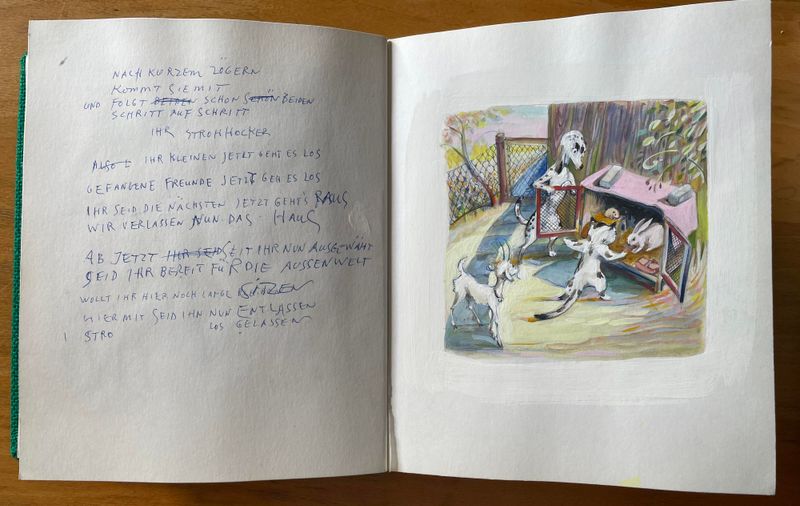 NACH KURZEM ZÖGERN
KOMMT SIE MIT
UND FOLGT BEIDEN SCHON SCHÖN BEIDEN
SCHRITT AUF SCHRITT
IHR STROHHOCKER
ALSO : IHR KLEINEN JETZT GEHT ES LOS
GEFANGENE FREUNDE JETZT GEH ES LOS
IHR SEID DIE NÄCHSTEN JETZT GEHT'S RAUS
WIR VERLASSEN NUN DAS HAUS
AB JETZT IHR SEID SEIT IHR NUN AUSGEWÄHT
SEID IHR BEREIT FÜR DIE AUSSENWELT
WOLLT IHR HIER NOCH LANGE SITZEN
HIERMIT SEID IHN NUN ENTLASSEN
LOS GELASSEN
1 STRO